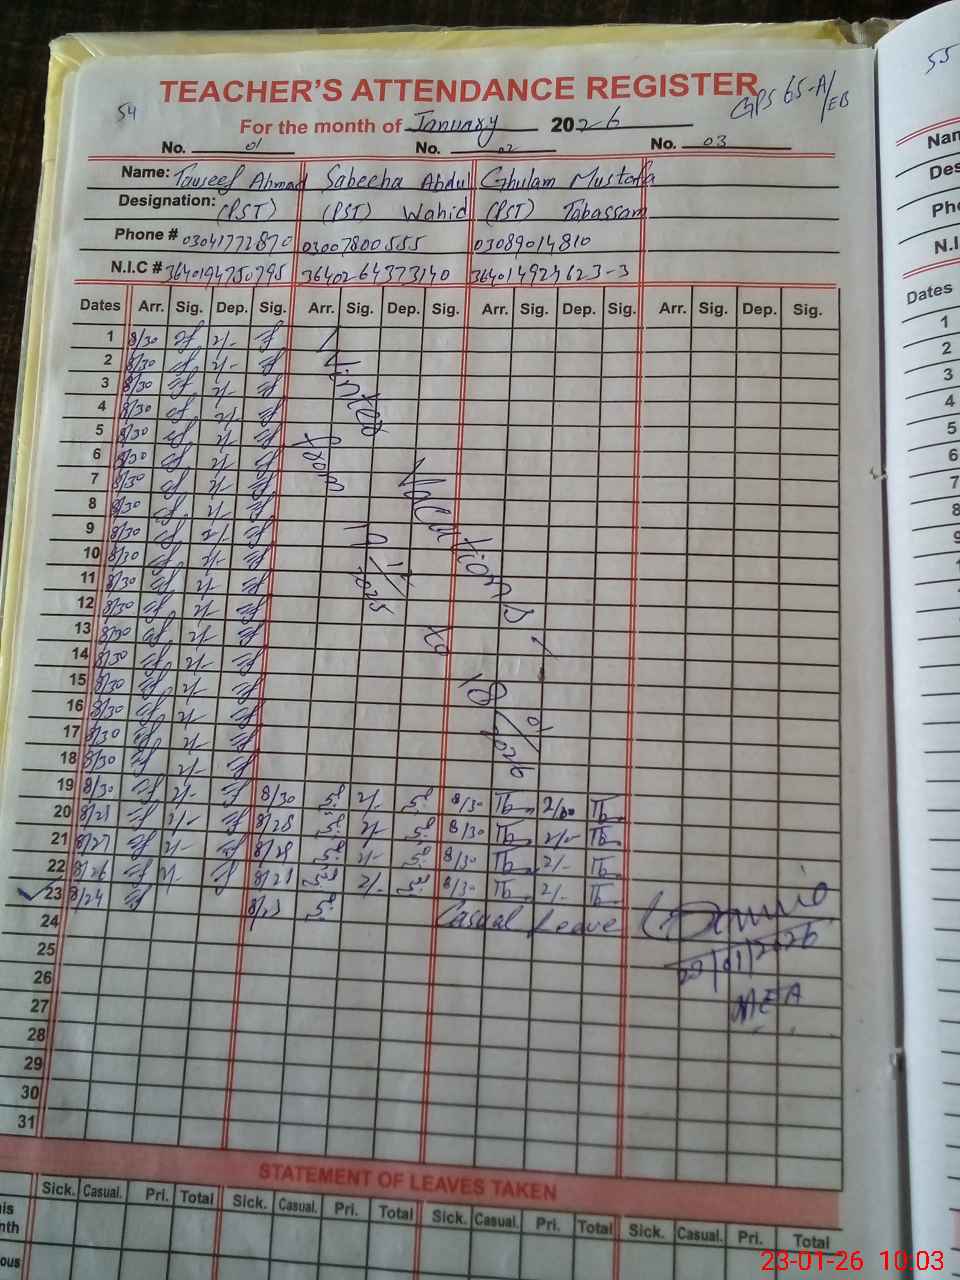 54
TEACHER'S ATTENDANCE REGISTER
GPS 65-A/EB
For the month of January 2026
No. 01 No. 02 No. 03
Name: Touseef Ahmad Sabeeha Abdul Ghulam Mustafa
Designation: (PST) (PST) Wahid (PST) Tabassam
Phone # 03041772870 03007800555 03089014810
N.I.C # 3640194750795 3640264373140 364014924623-3
Dates Arr. Sig. Dep. Sig. Arr. Sig. Dep. Sig. Arr. Sig. Dep. Sig. Arr. Sig. Dep. Sig.
1 8/30 2/-
2 8/30 2/-
3 8/30 2/-
4 8/30 2/-
5 8/30 2/-
6 8/30 2/-
7 8/30 2/-
8 8/30 2/-
9 8/30 2/-
10 8/30 2/-
11 8/30 2/-
12 8/30 2/-
13 8/30 2/-
14 8/30 2/-
15 8/30 2/-
16 8/30 2/-
17 8/30 2/-
18 8/30 2/-
Winter Vacations
from 19/12/2025 to 18/01/2026
19 8/30 2/- 8/30 2/- 8/30 2/00
20 8/28 2/- 8/28 2/- 8/30 2/-
21 8/27 2/- 8/28 2/- 8/30 2/-
22 8/26 2/- 8/28 2/- 8/30 2/-
23 8/24 8/23 Casual Leave
24
23/01/2026
25
MEA
26
27
28
29
30
31
STATEMENT OF LEAVES TAKEN
Sick. Casual. Pri. Total Sick. Casual. Pri. Total Sick. Casual. Pri. Total Sick. Casual. Pri. Total
55
Dates
1
2
3
4
5
6
7
8
23-01-26 10:03